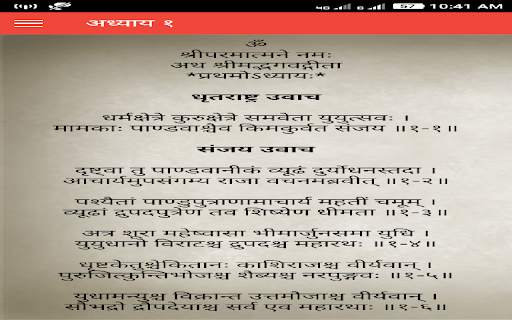 4G 57 10:41 AM
अध्याय १
ॐ
श्रीपरमात्मने नमः
अथ श्रीमद्भगवद्गीता
*प्रथमोऽध्यायः*
धृतराष्ट्र उवाच
धर्मक्षेत्रे कुरुक्षेत्रे समवेता युयुत्सवः ।
मामकाः पाण्डवाश्चैव किमकुर्वत संजय ॥१-१॥
संजय उवाच
दृष्ट्वा तु पाण्डवानीकं व्यूढं दुर्योधनस्तदा ।
आचार्यमुपसंगम्य राजा वचनमब्रवीत् ॥१-२॥
पश्यैतां पाण्डुपुत्राणामाचार्य महतीं चमूम् ।
व्यूढां द्रुपदपुत्रेण तव शिष्येण धीमता ॥१-३॥
अत्र शूरा महेष्वासा भीमार्जुनसमा युधि ।
युयुधानो विराटश्च द्रुपदश्च महारथः ॥१-४॥
धृष्टकेतुश्चेकितानः काशिराजश्च वीर्यवान् ।
पुरुजित्कुन्तिभोजश्च शैब्यश्च नरपुङ्गवः ॥१-५॥
युधामन्युश्च विक्रान्त उत्तमौजाश्च वीर्यवान् ।
सौभद्रो द्रौपदेयाश्च सर्व एव महारथाः ॥१-६॥